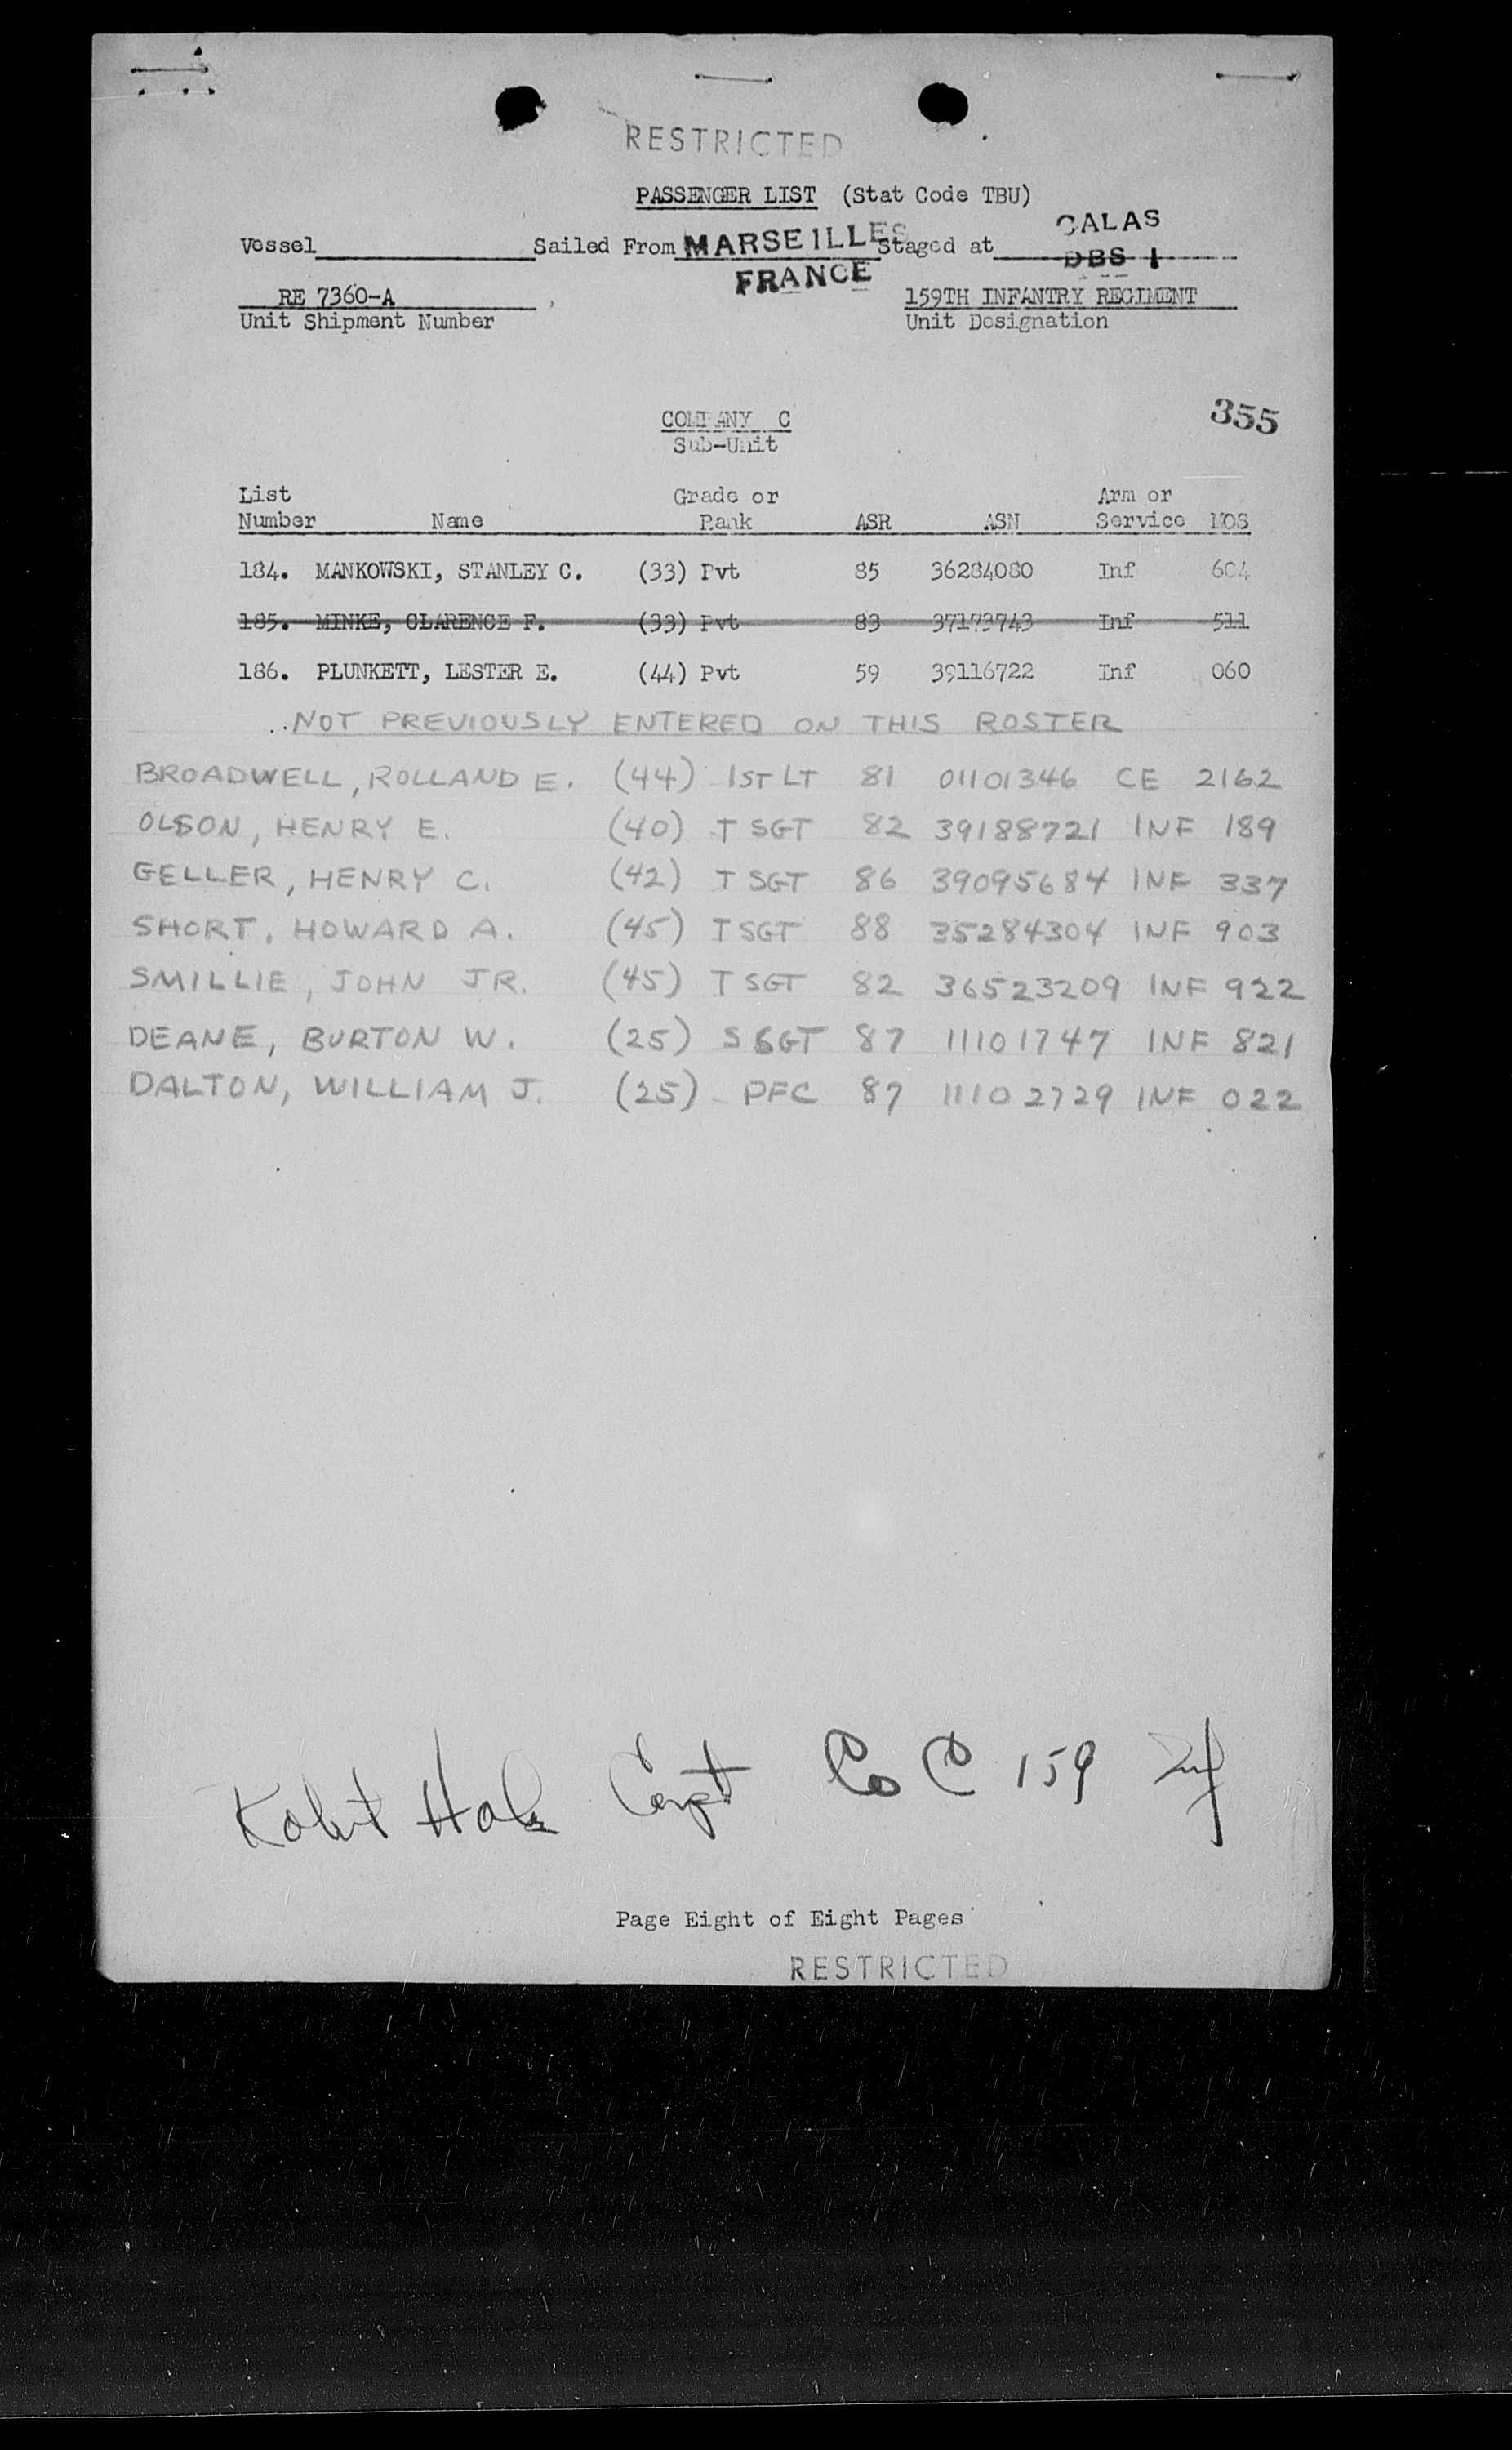 RESTRICTED
PASSENGER LIST (Stat Code TBU)
CALAS
Vessel Sailed From MARSEILLES Staged at DBS 1
FRANCE
RE 7360-A 159TH INFANTRY REGIMENT
Unit Shipment Number Unit Designation
355
COMPANY C
Sub-Unit
List Grade or Arm or
Number Name Rank ASR ASN Service MOS
184. MANKOWSKI, STANLEY C. (33) Pvt 85 36284080 Inf 604
185. MINKE, CLARENCE F. (33) Pvt 83 37173743 Inf 511
186. PLUNKETT, LESTER E. (44) Pvt 59 39116722 Inf 060
NOT PREVIOUSLY ENTERED ON THIS ROSTER
BROADWELL, ROLLAND E. (44) 1ST LT 81 01101346 CE 2162
OLSON, HENRY E. (40) T SGT 82 39188721 INF 189
GELLER, HENRY C. (42) T SGT 86 39095684 INF 337
SHORT, HOWARD A. (45) T SGT 88 35284304 INF 903
SMILLIE, JOHN JR. (45) T SGT 82 36523209 INF 922
DEANE, BURTON W. (25) S SGT 87 11101747 INF 821
DALTON, WILLIAM J. (25) PFC 87 11102729 INF 022
Capt Co C 159 Inf
Page Eight of Eight Pages
RESTRICTED